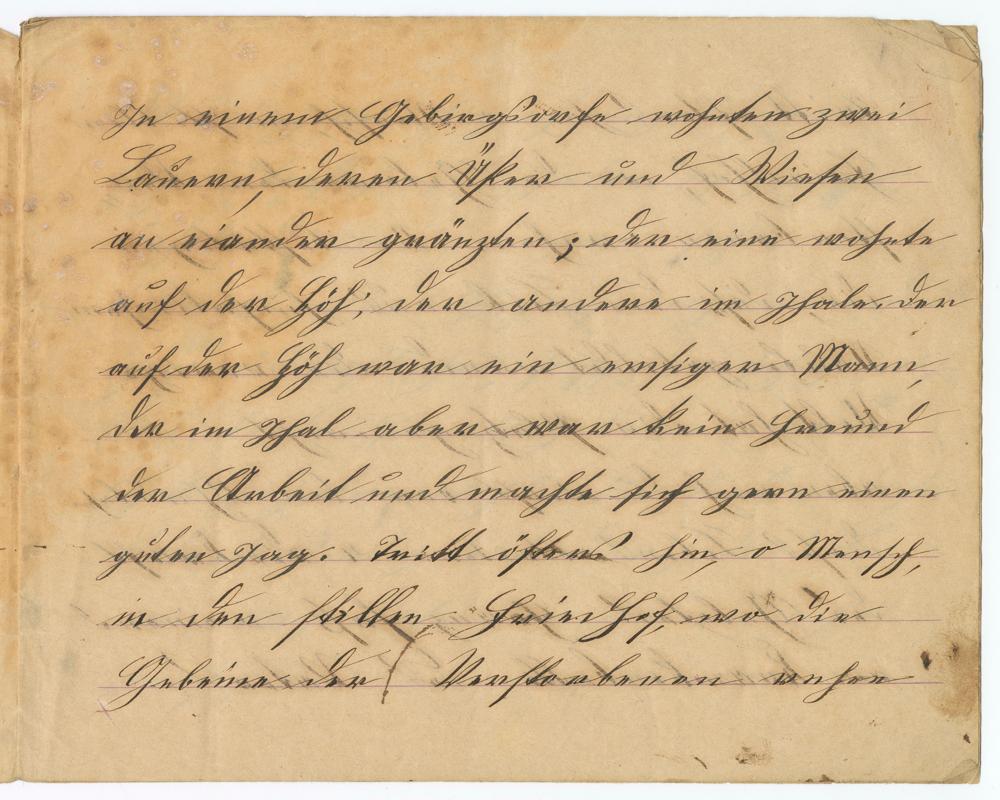 In einem Gebirgsdorfe wohnten zwei
Bauern, deren Äker und Wiesen
an eiander gränzten; der eine wohnte
auf der Höh, der andere im Thale. der
auf der Höh war ein emsiger Mann,
der im Thal aber war kein Freund
der Arbeit und machte sich gern einen
guten Tag. Tritt öfters hin, o Mensch,
in den stillen Friedhof, wo die
Gebeine der Verstorbenen ruhen